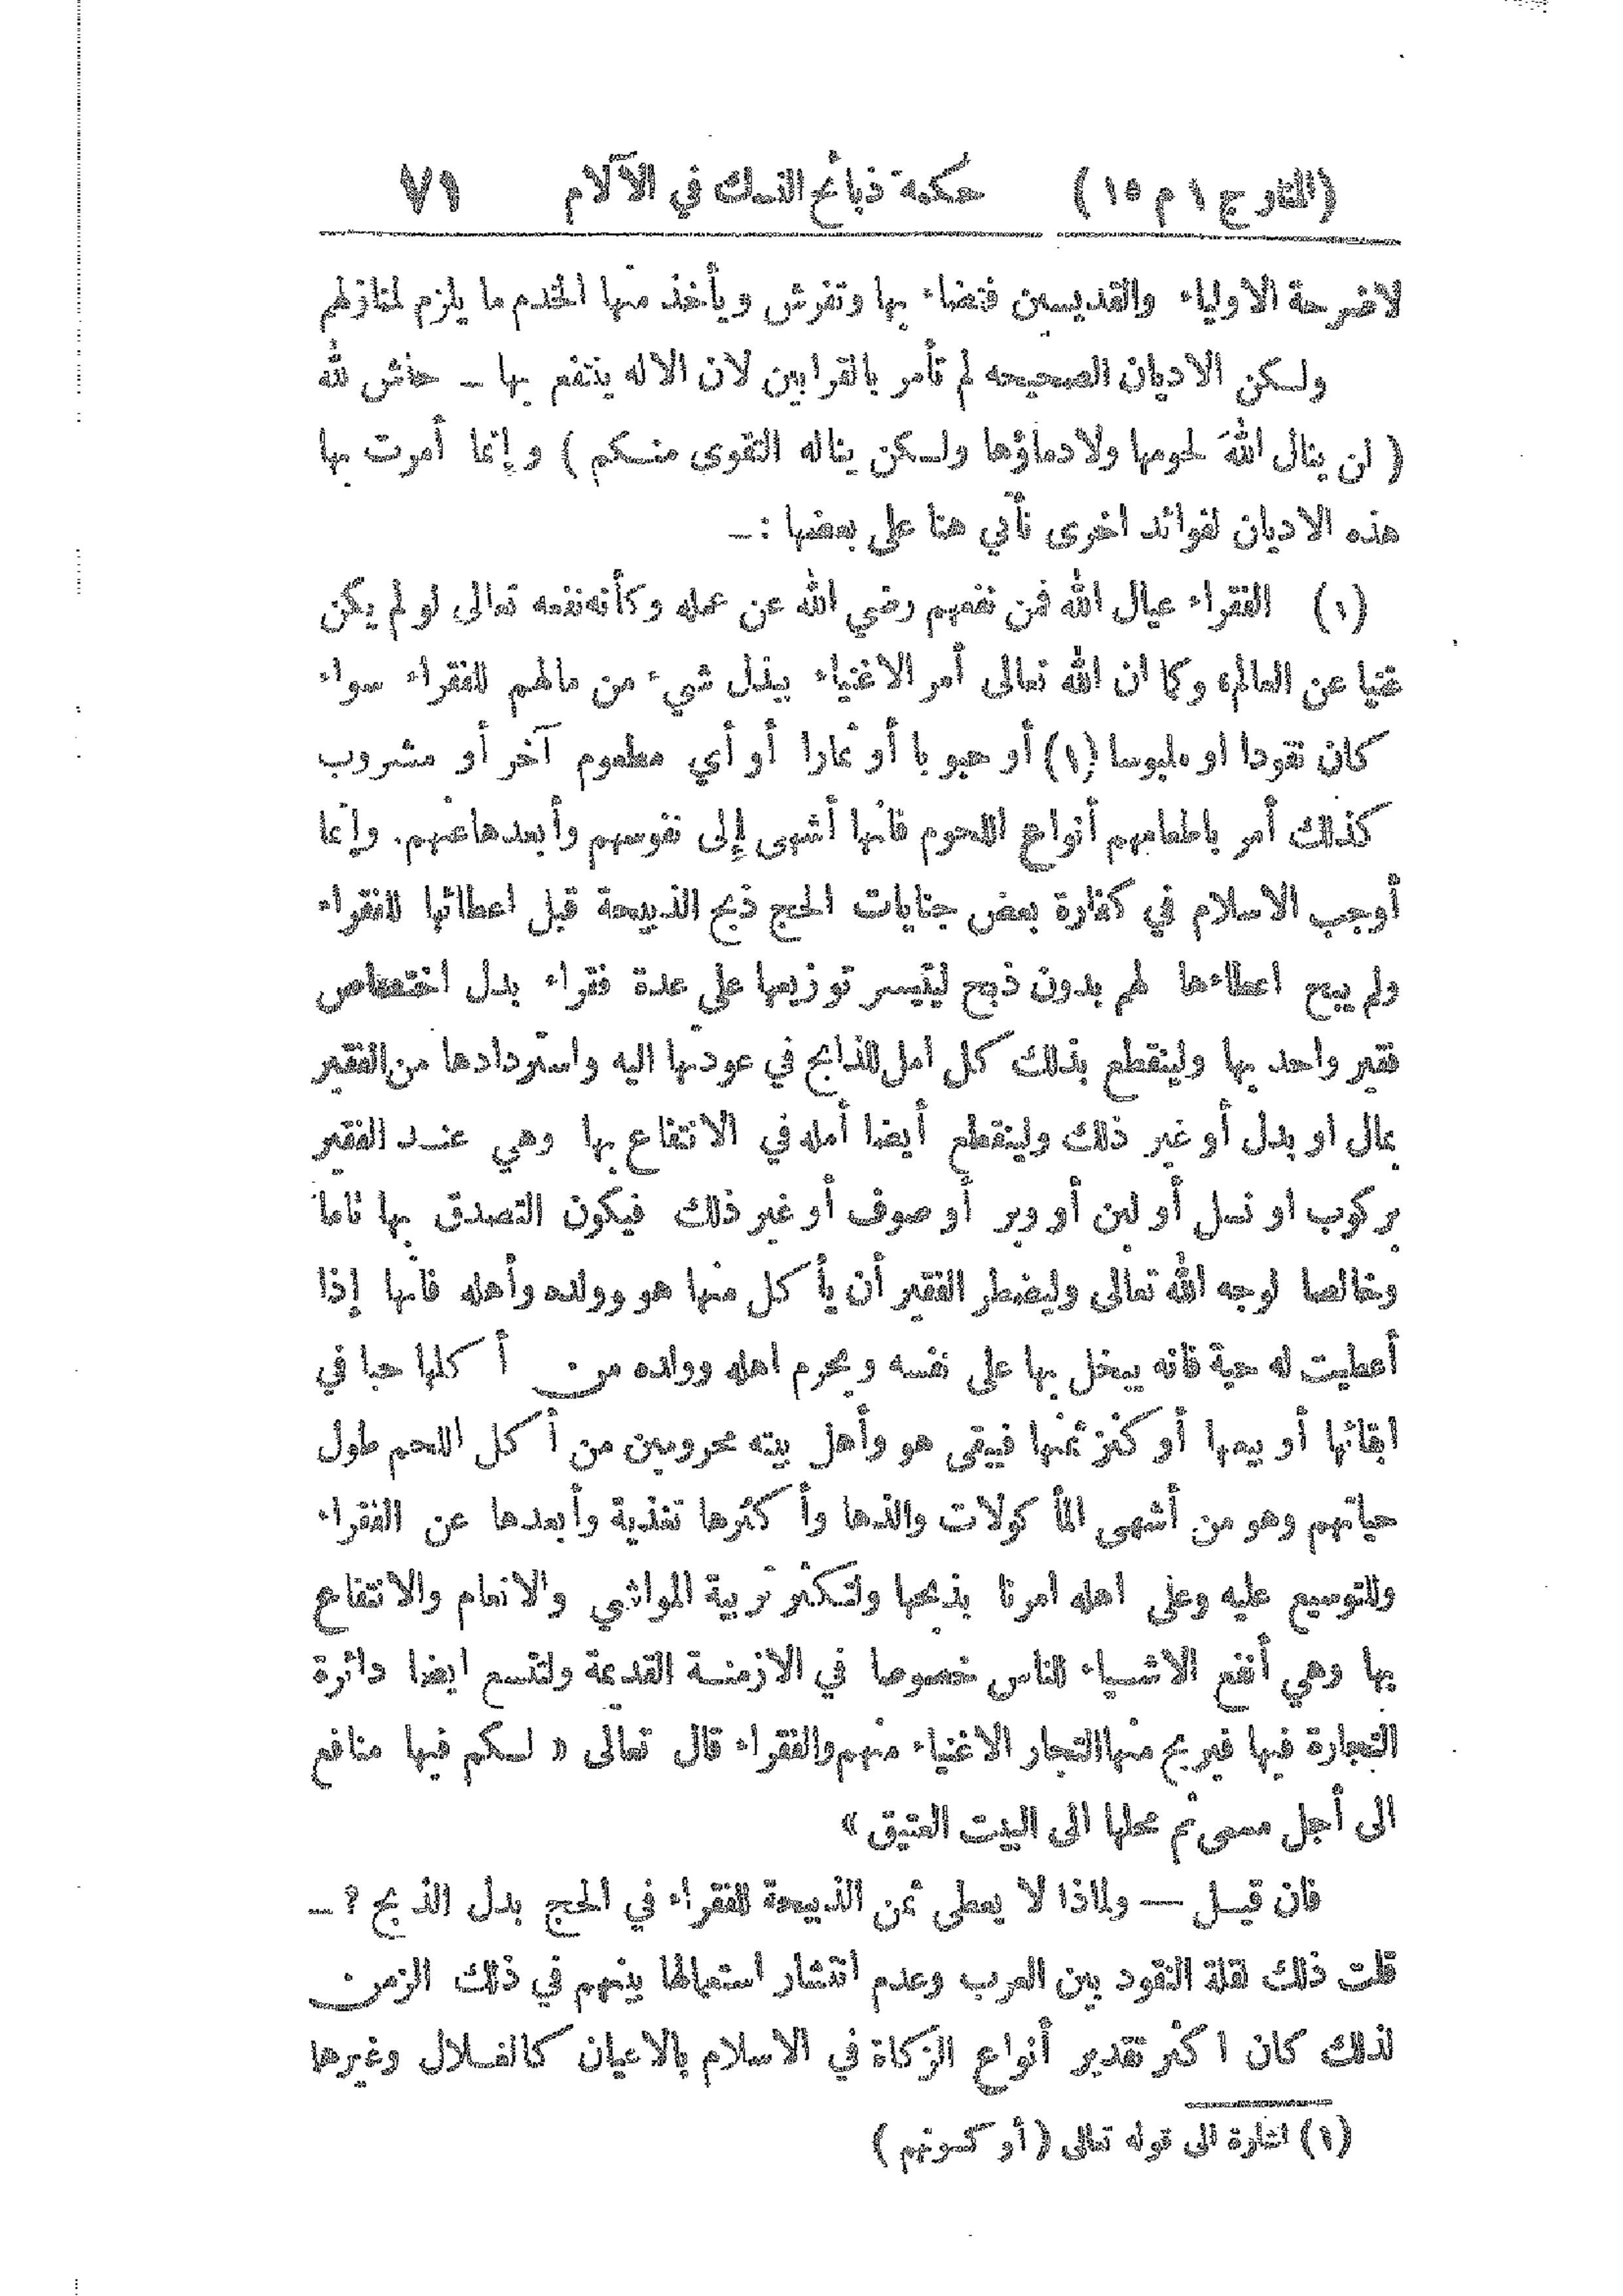 (المنارج ١ م ١٥) حكمة ذبائح النسك في الآلام ٧١
لاضرحة الاولياء والقديسين فتضاء بها وتفرش ويأخذ منها الخدم ما يلزم لمنازلهم
ولكن الاديان الصحيحه لم تأمر بالقرابين لان الاله ينتفع بها ــ حاش لله
( لن ينال اللهَ لحومها ولادماؤها ولكن يناله التقوى منكم ) وإنما أمرت بها
هذه الاديان لفوائد اخرى نأتي هنا على بعضها :ــ
(١) الفقراء عيال الله فمن نفعهم رضي الله عن عمله وكأنه نفعه تعالى لو لم يكن
غنيا عن العالم، وكما ان الله تعالى أمر الاغنياء ببذل شيء من مالهم للفقراء سواء
كان نقودا او ملبوسا (١) أو حبوبا أو ثمارا أو أي مطعوم آخر أو مشروب
كذلك أمر باطعامهم أنواع اللحوم فانها أشهى إلى نفوسهم وأبعدها عنهم. وإنما
أوجب الاسلام في كفارة بعض جنايات الحج ذبح الذبيحة قبل اعطائها للفقراء
ولم يبح اعطاءها لهم بدون ذبح ليتيسر توزيعها على عدة فقراء بدل اختصاص
فقير واحد بها ولينقطع بذلك كل امل للذابح في عودتها اليه واستردادها من الفقير
بمال او بدل أو غير ذلك ولينقطع أيضا أمله في الانتفاع بها وهي عند الفقير
بركوب او نسل أو لبن أو وبر أو صوف أو غير ذلك فيكون التصدق بها تاما
وخالصا لوجه الله تعالى وليضطر الفقير أن يأكل منها هو وولده وأهله فانها إذا
أعطيت له حية فانه يبخل بها على نفسه ويحرم اهله وولده من أكلها حبا في
ابقائها أو بيعها أو كنز ثمنها فيبقى هو وأهل بيته محرومين من أكل اللحم طول
حياتهم وهو من أشهى المأكولات والذها وأكثرها تغذية وأبعدها عن الفقراء
وللتوسيع عليه وعلى اهله امرنا بذبحها ولتكثر تربية المواشي والانعام والانتفاع
بها وهي أنفع الاشياء للناس خصوصا في الازمنة القديمة ولتتسع ايضا دائرة
التجارة فيها فيربح منها التجار الاغنياء منهم والفقراء قال تعالى « لكم فيها منافع
الى أجل مسمى ثم محلها الى البيت العتيق »
فان قيل — ولماذا لا يعطى ثمن الذبيحة للفقراء في الحج بدل الذبح ؟ ــ
قلت ذلك لقلة النقود بين العرب وعدم انتشار استعمالها بينهم في ذلك الزمن
لذلك كان اكثر تقدير أنواع الزكاة في الاسلام بالاعيان كالغلال وغيرها
(١) اشارة الى قوله تعالى ( أو كسوتهم )